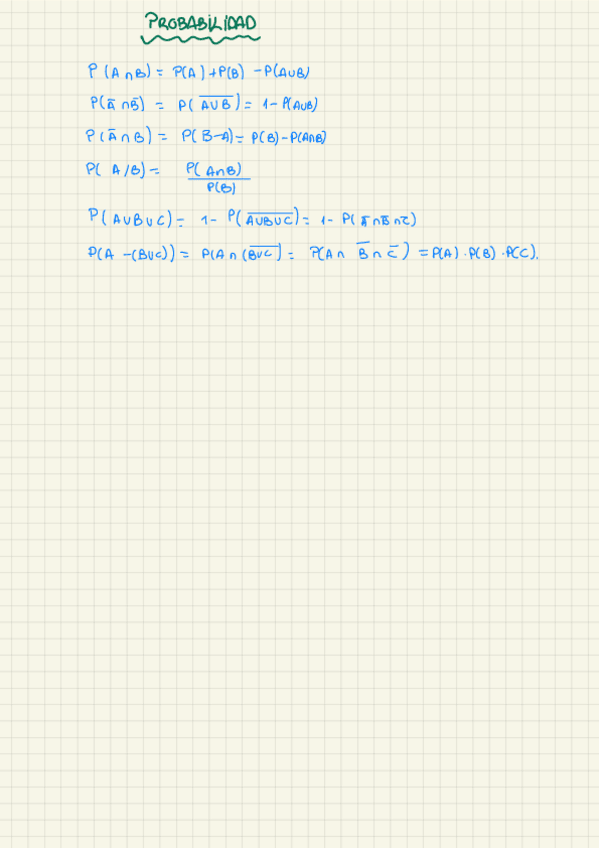 PROBABILIDAD
P(A∩B) = P(A)+P(B) -P(A∪B)
P(Ā∩B̄) = P(A̅∪̅B̅) = 1-P(A∪B)
P(Ā∩B) = P(B-A) = P(B)-P(A∩B)
P(A/B) = P(A∩B)
P(B)
P(A∪B∪C) = 1- P(A̅∪̅B̅∪̅C̅) = 1- P(Ā∩B̄∩C̄)
P(A -(B∪C)) = P(A∩(B̅∪̅C̅) = P(A∩ B̄∩C̄) = P(A)·P(B)·P(C).